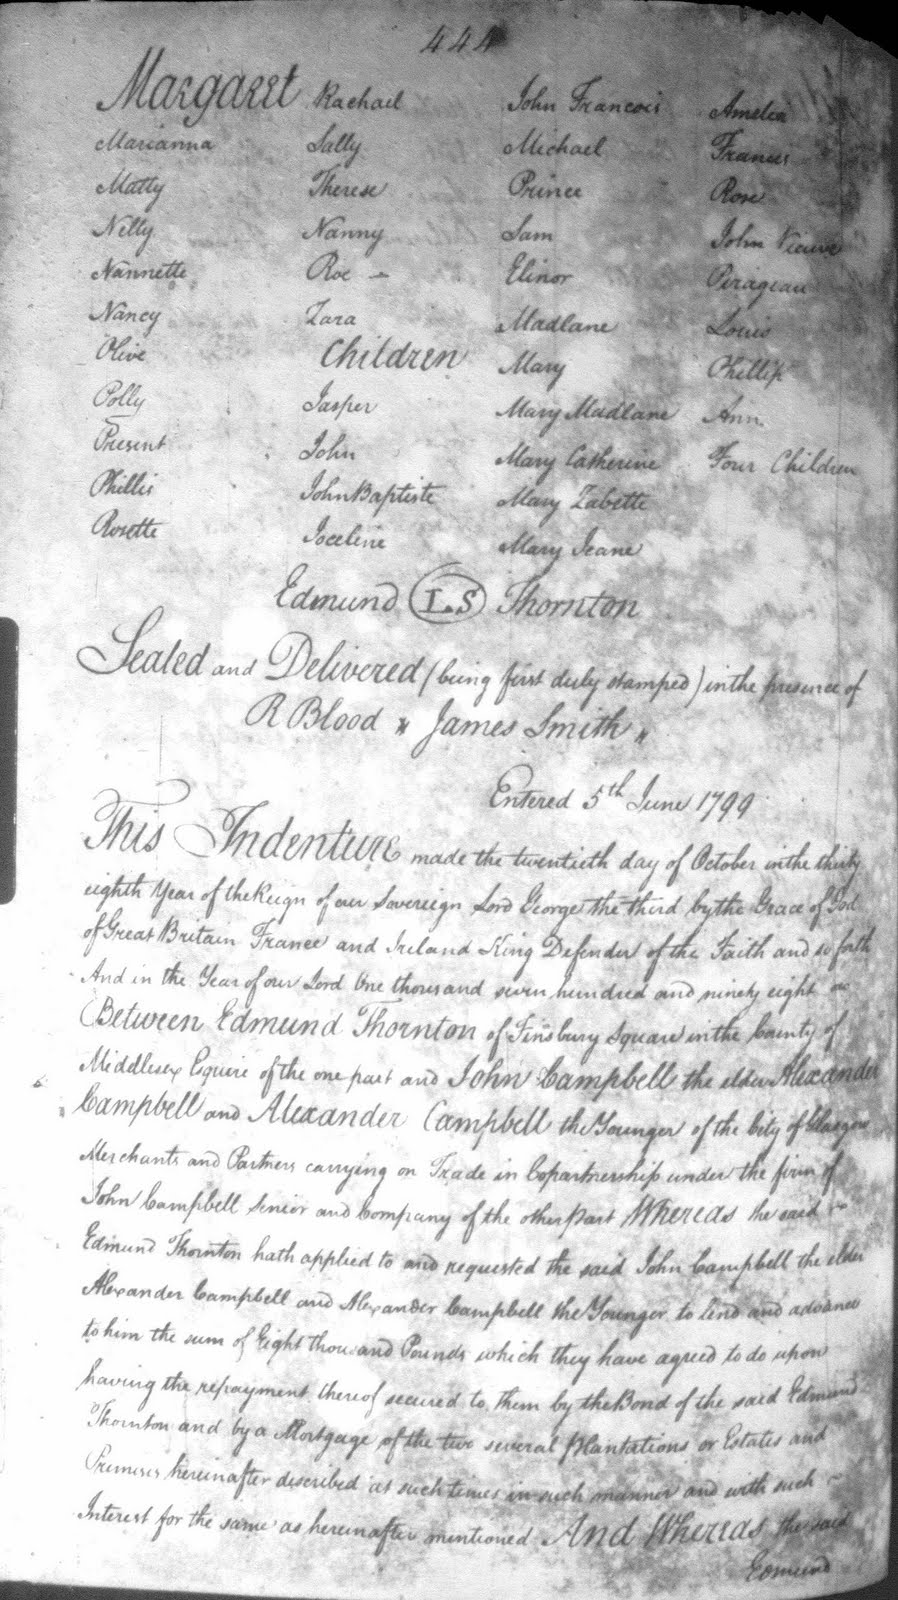 444
Margaret Rachael John Francois Amelia
Marianna Sally Michael Francis
Matty Therese Prince Rose
Nelly Nanny Sam John Vieuve
Nannette Roe Elinor Perageau
Nancy Zara Madlane Louis
Olive Children Mary Phillip
Polly Jasper Mary Madlane Ann
Present John Mary Catherine Four Children
Phillis John Baptiste Mary Zabette
Rosette Joceline Mary Jeane
Edmund L.S Thornton
Sealed and Delivered (being first duly stamped) in the presence of
R Blood " James Smith "
Entered 5th June 1799
This Indenture made the twentieth day of October in the thirty
eighth Year of the Reign of our Sovereign Lord George the third by the Grace of God
of Great Britain France and Ireland King Defender of the Faith and so forth
And in the Year of our Lord One thousand seven hundred and ninety eight
Between Edmund Thornton of Finsbury Square in the County of
Middlesex Esquire of the one part and John Campbell the elder Alexander
Campbell and Alexander Campbell the Younger of the City of Glasgow
Merchants and Partners carrying on Trade in Copartnership under the firm of
John Campbell Senior and Company of the other part Whereas he said
Edmund Thornton hath applied to and requested the said John Campbell the elder
Alexander Campbell and Alexander Campbell the Younger to lend and advance
to him the sum of Eight thousand Pounds which they have agreed to do upon
having the repayment thereof secured to them by the Bond of the said Edmund
Thornton and by a Mortgage of the two several Plantations or Estates and
Premises hereinafter described at such times in such manner and with such
Interest for the same as hereinafter mentioned And Whereas the said
Edmund